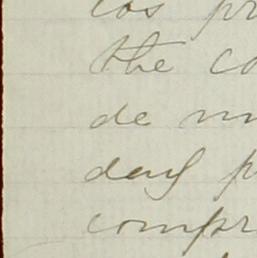 los pr
the co
de m
deny p
compr